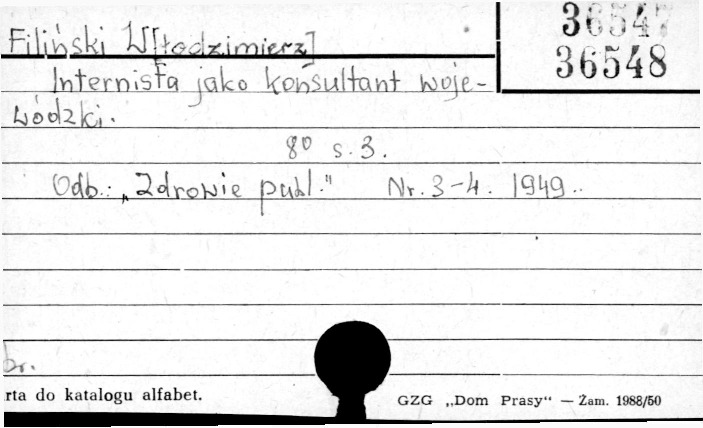 Filiński W[łodzimierz]
36547
36548
Internista jako konsultant woje-
wódzki.
8⁰ s. 3.
Odb.: „Zdrowie publ." Nr. 3-4. 1949.
br.
rta do katalogu alfabet.
GZG „Dom Prasy“ — Żam. 1988/50